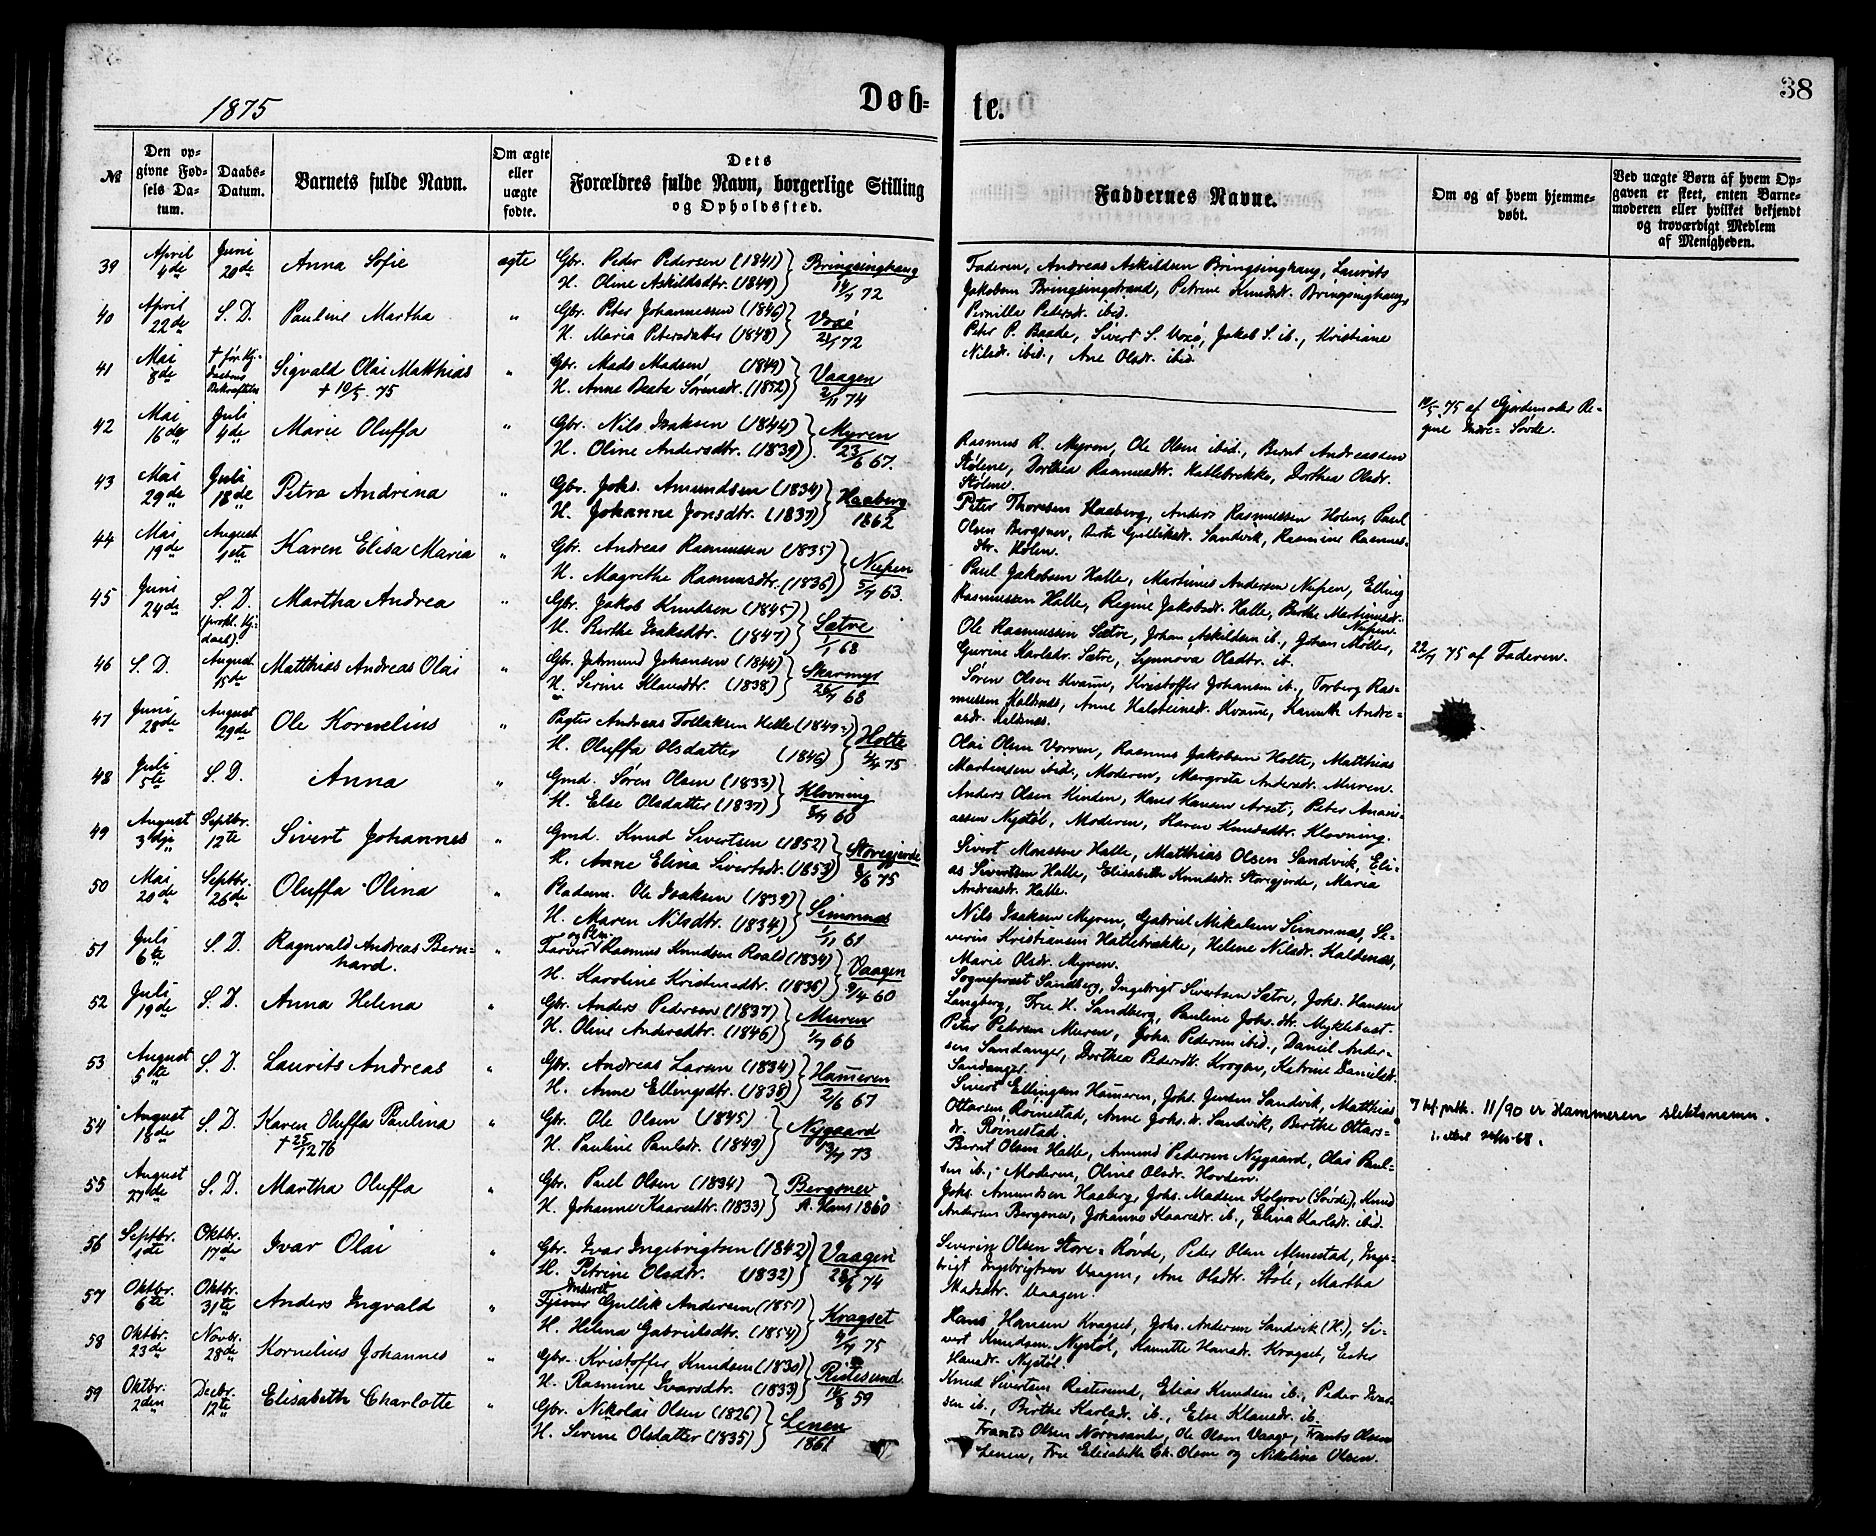 38
1875
Døb- te.
№
Den op-
givne Fød-
sels Da-
tum.
Daabs-
Datum.
Barnets fulde Navn.
Om ægte
eller
uægte
fødte.
Dets
Forældres fulde Navn, borgerlige Stilling
og Opholdssted.
Faddernes Navne.
Om og af hvem hjemme-
døbt.
Ved uægte Børn af hvem Op-
gaven er skeet, enten Barne-
moderen eller hvilket bekjendt
og troværdigt Medlem
af Menigheden.
39 April 4de Juni 20de Anna Sofie ægte
Gbr. Peder Pedersen (1841)
H. Oline Askildsdtr. (1849) Bringsinghaug 14/7 72
Faderen, Andreas Askildsen Bringsinghaug, Laurits
Jakobsen Bringsingstrand, Petrine Knudsdr. Bringsinghaug,
Pernille Petersdr. ibid.
40 April 22de S. D. Pauline Martha "
Gbr. Peter Johannessen (1846)
H. Maria Petersdatter (1848) 72
Peter P. Baade, Sivert S. Voxø, Jakob S. ib., Kristiane
Nilsdr. ibid., Ane Olsdr. ibid.
41 Mai 8de † før Kj- Bekræftelse Sigvald Olai Matthias "
† 10/5 75
Gbr. Mads Madsen (1849)
H. Anne Beata Sørensdr. (1852) Vaagen 2/11 74
10/5 75 af Gjordemoder Re-
gine Indre-Sørde.
42 Mai 16de Juli 4de Marie Oluffa "
Gbr. Nils Isaksen (1844)
H. Oline Andersdtr. (1839) Myren 23/6 67.
Rasmus R. Myren, Ole Olsen ibid., Bernt Andreassen
Stølene, Dorthea Rasmusdtr. Hatlebrekke, Dorthea Olsdr.
Stølene.
43 Mai 29de Juli 18de Petra Andrina "
Gbr. Johs. Amundsen (1834)
H. Johanne Jonsdtr. (1837) Haaberg 1862
Peter Thoresen Haaberg, Anders Rasmussen Holen, Paul
Olsen Bergsnev, Berte Gulliksdr. Sandvik, Rasmine Rasmus-
dtr. Holen.
44 Mai 19de August 1ste Karen Elisa Maria "
Gbr. Andreas Rasmussen (1835)
H. Magrethe Rasmusdtr. (1836) Nupen 5/7 63.
Paul Jakobsen Halle, Martinus Andersen Nupen, Elling
Rasmussen Halle, Regine Jakobsdr. Halle, Berthe Martinusdr.
Nupen.
45 Juni 24de S. D. Martha Andrea "
Gbr. Jakob Knudsen (1845)
H. Berthe Isaksdtr. (1847) Sætre 1/1 68
Ole Rasmussen Sætre, Johan Askildsen ib., Johan Møller,
Gurine Karlsdr. Sætre, Synnøva Olsdtr. ib.
22/7 75 af Faderen.
46 S. D. August 15de Matthias Andreas Olai "
Gbr. Johansen (1844)
H. Serine Klausdtr. (1838) Skarmyr 68
Søren Olsen Kvame, Kristoffer Johansen ib., Torberg Ras-
mussen Haldsnes, Anne Halsteinsdr. Kvame, Hansine Andre-
asdr. Haldsnes.
47 Juni 28de August 29de Ole Kornelius "
Pagter Andreas Tollaksen Helle (1849)
H. Oluffa Olsdatter (1846) Holte 75
Olai Olsen Vorren, Rasmus Jakobsen Holte, Matthias
Martinsen ibid., Moderen, Margrete Andersdr. Muren.
48 Juli 5te S. D. Anna "
Gmd. Søren Olsen (1833)
H. Else Olsdatter (1837) Klovning 60
Anders Olsen Kinden, Hans Hansen Arset, Peter Anani-
assen Nystøl, Moderen, Karen Knudsdtr. Klovning.
49 August 3dje Septbr. 12te Sivert Johannes "
Gmd. Knud Sivertsen (1852)
H. Anne Elina Sivertsdr. (1853) Storegjerde 8/6 75
Sivert Monssen Halle, Matthias Olsen Sandvik, Eli-
as Sivertsen Halle, Elisabeth Knudsdr. Storegjerde, Maria
Andreasdr. Halle.
50 Mai 20de Septbr. 26de Oluffa Olina "
Pladsm. Ole Isaksen (1839)
H. Maren Nilsdtr. (1834) Simonnes 1/11 61
Nils Isaksen Myren, Gabriel Mikalsen Simonnes, Se-
verin Kristiansen Hatlebrekke, Helene Nilsdr. Haldsnes,
Marie Olsdr. Myren.
51 Juli 6te S. D. Ragnvald Andreas Bern-
hard. "
Farver og Rasmus Knudsen Roald (1834)
H. Karoline Kristensdtr. (1835) Vaagen 9/4 60
Sogneprest Sandberg, Ingebrigt Sivertsen Sætre, Johs. Hansen
Langberg, Frue H. Sandberg, Pauline Johs.dtr. Myklebust.
52 Juli 19de S. D. Anna Helena "
Gbr. Anders Pedersen (1837)
H. Oline Andersdtr. (1846) Muren 1/7 66
Peter Petersen Muren, Johs. Pedersen ibid., Daniel Ander-
sen Sandanger, Dorthea Pedersdtr. Krogen, Katrine Danielsdr.
Sandanger.
53 August 5te S. D. Laurits Andreas "
Gbr. Andreas Larsen (1834)
H. Anne Ellingsdtr. (1838) Hameren 2/6 67
Sivert Ellingsen Hameren, Johs. Jensen Sandvik, Matthias
Ottarsen Roinestad, Anne Johs.dr. Sandvik, Berthe Ottars-
dr. Roinestad.
11/90 er Hammeren slektsnavn.
54 August 18de S. D. Karen Oluffa Paulina "
† 25/12 76
Gbr. Ole Olsen (1845)
H. Pauline Paulsdr. (1849) Nygaard 73
Bernt Olsen Halle, Amund Pedersen Nygaard, Olai Paul-
sen ib., Moderen, Oline Olsdr. Hovden.
55 August 27de S. D. Martha Oluffa "
Gbr. Paul Olsen (1834)
H. Johanne Kaaresdtr. (1833) Bergsnev. 1860
Johs. Amundsen Haaberg, Johs. Madsen Kolgrov (Sørde), Knud
Andersen Bergsnev, Johanne Kaaresdr. ib., Elina Karlsdr. ibid.
56 Septbr. 1ste Oktbr. 17de Ivar Olai "
Gbr. Ivar Ingebrigtsen (1842)
H. Petrine Olsdtr. (1832) Vaagen 28/6 74
Severin Olsen Store-Røvde, Peder Olsen Almestad, Inge-
brigt Ingebrigtsen Vaagen, Ane Olsdtr. Stole, Martha
Madsdtr. Vaagen.
57 Oktbr. 6te Oktbr. 31te Anders Ingvald "
Inderst
Gullik Andersen (1851)
H. Helena Gabrielsdtr. (1854) Kragset 75
Hans Hansen Kragset, Johs. Andersen Sandvik (H.), Si-
vert Knudsen Nystøl, Hansdr. Kragset, Ester
Hansdr. Nystøl.
58 Oktbr. 23de Novbr. 28de Kornelius Johannes "
Gbr. Kristoffer Knudsen (1830)
H. Rasmine Ivarsdtr. (1833) Ristesund 14/8 59
Knud Sivertsen Ristesund, Elias Knudsen ib., Peder Ivar-
sen ib., Birthe Karlsdr. ib., Else Klausdr. ib.
59 Oktbr. 2den Decbr. 12te Elisabeth Charlotte "
Gbr. Nikolai Olsen (1826)
H. Serine Olsdatter (1835) Lenen 1861
Frants Olsen Nørresande, Ole Olsen Vaage, Frants Olsen
Lenen, Frue Elisabeth Ch. Olsen og Nikolina Olsen.